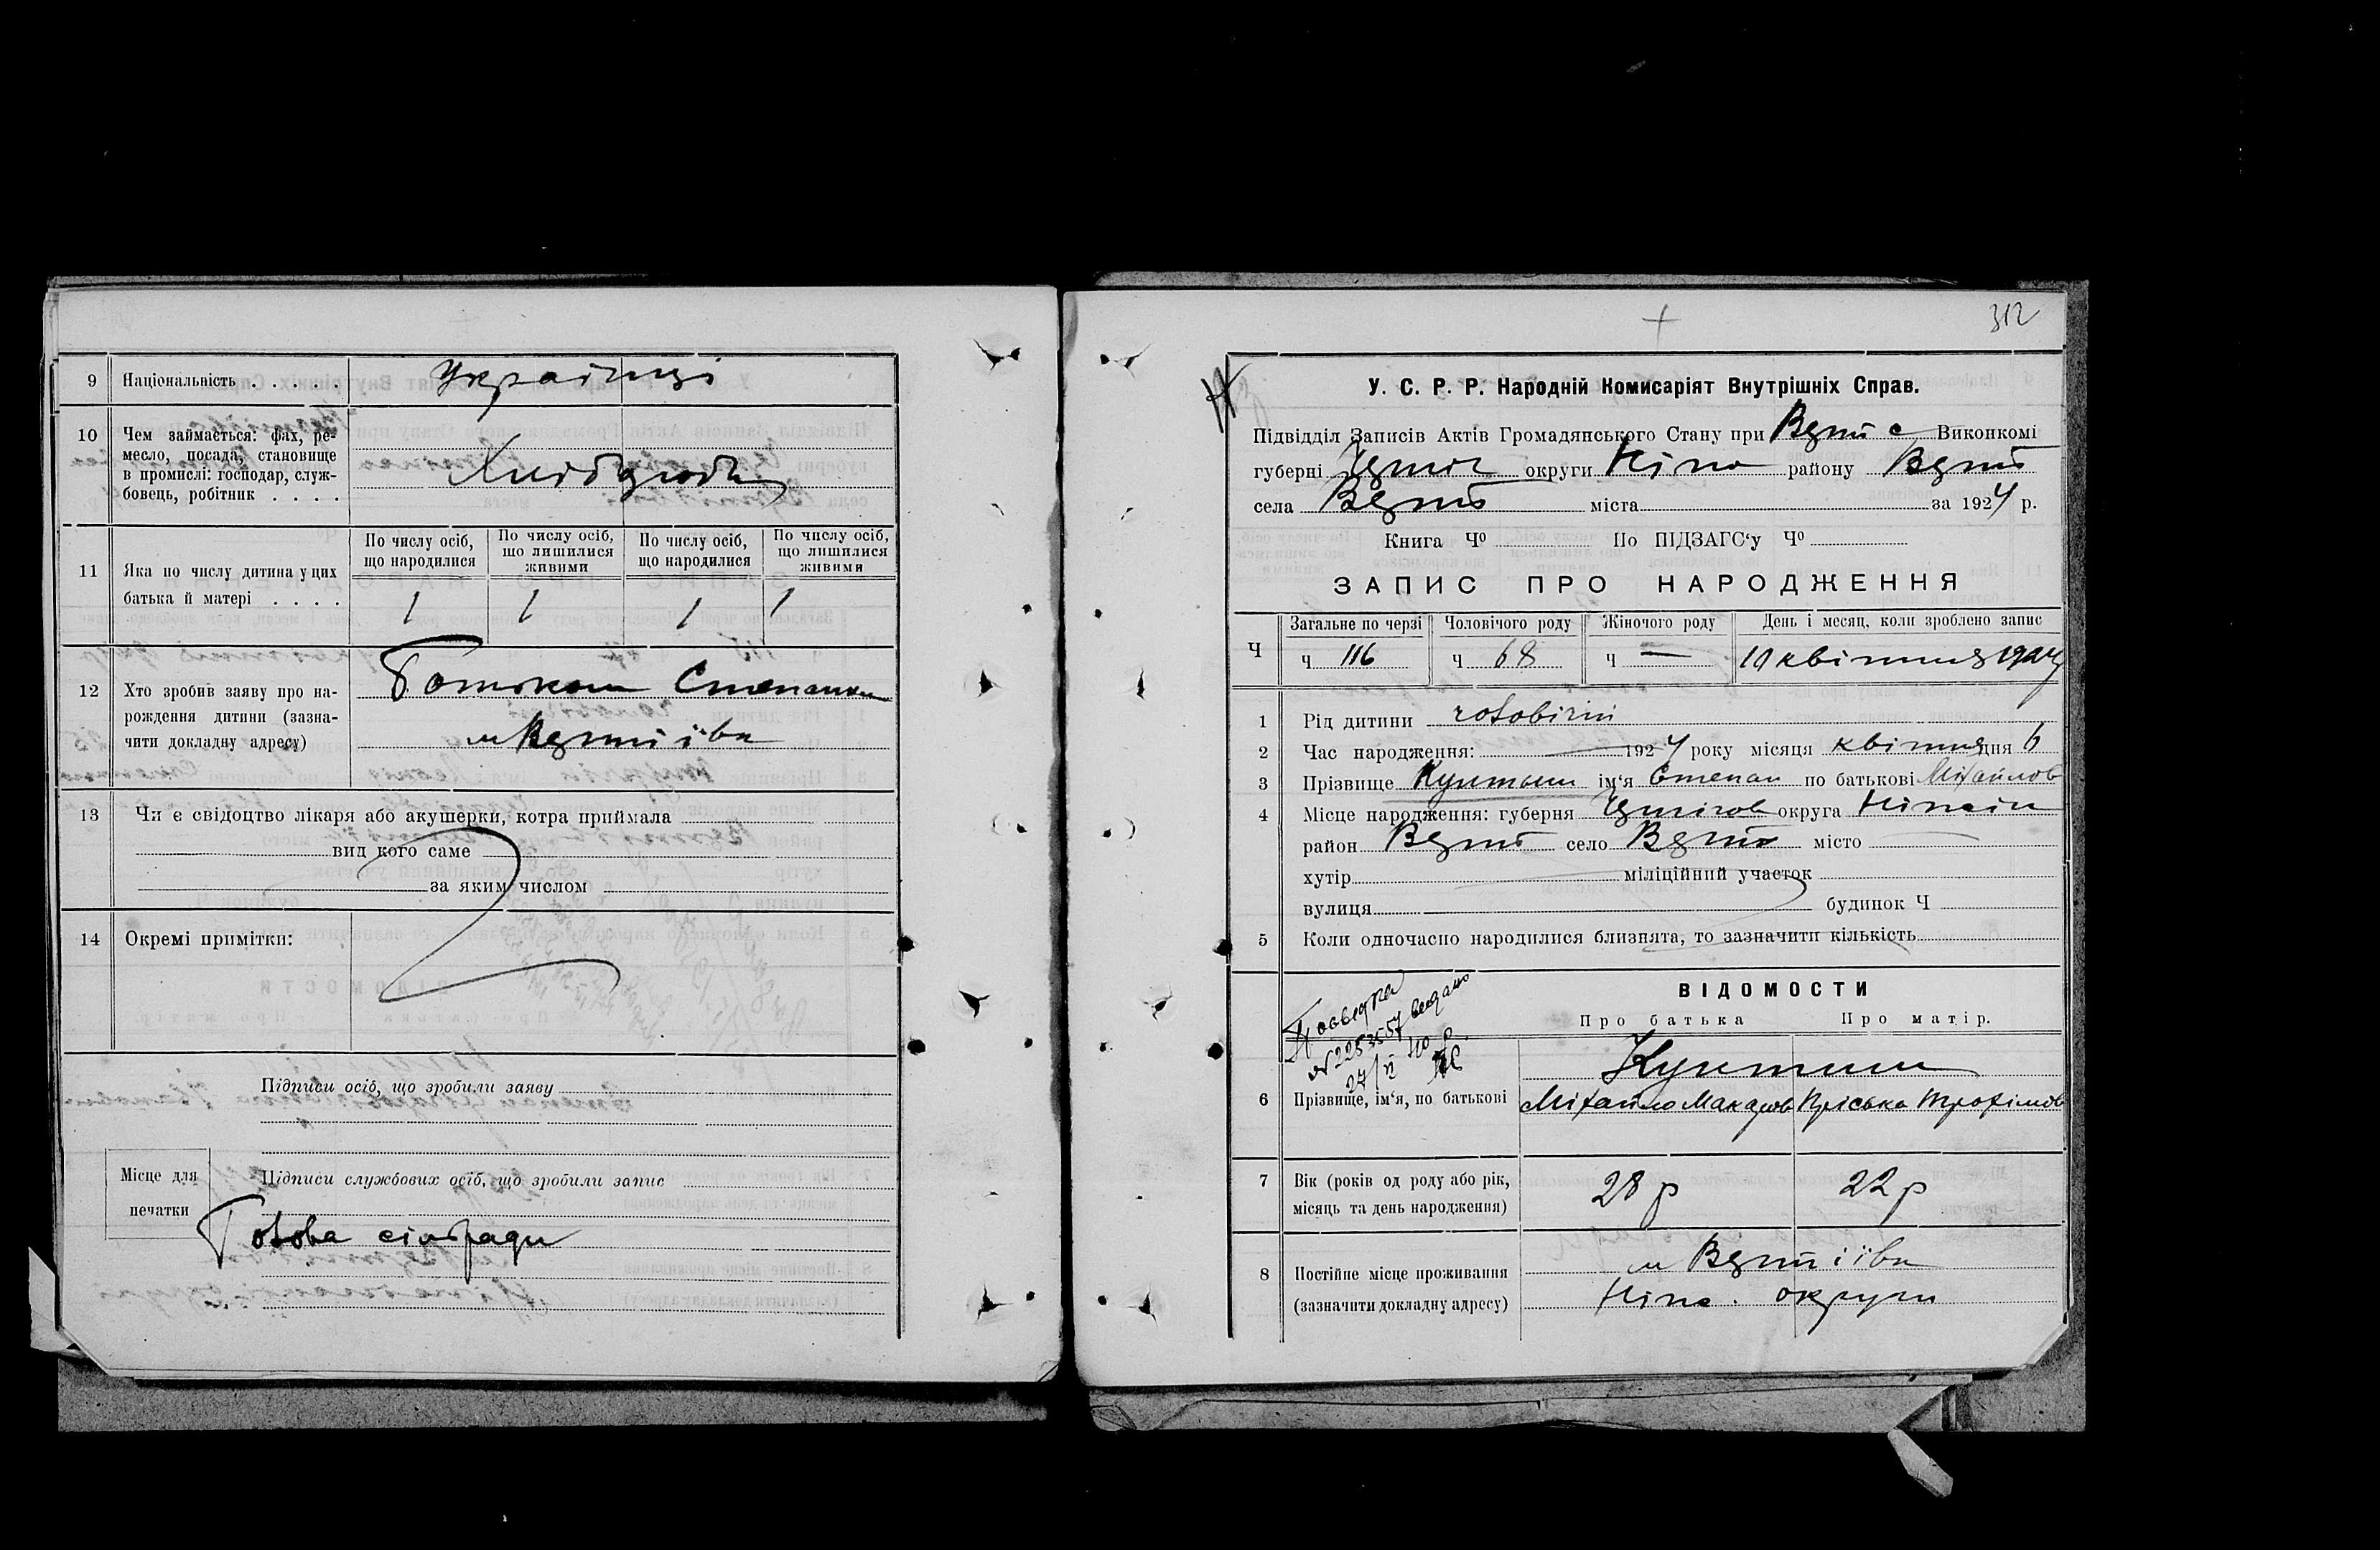 9 Національність . . . . . Українці
10 Чем займається: фах, ре-
месло, посада, становище
в промислі: господар, служ-
бовець, робітник . . . . Хлібороби
11 Яка по числу дитина у цих
батька й матері . . . .
По числу осіб, що народилися
По числу осіб, що лишилися живими
По числу осіб, що народилися
По числу осіб, що лишилися живими
1 1 1 1
12 Хто зробив заяву про на-
рождення дитини (зазна-
чити докладну адресу)
Батьком Степана
м Вертіївка
13 Чи є свідоцтво лікаря або акушерки, котра приймала
вид кого саме
за яким числом
14 Окремі примітки:
Підписи осіб, що зробили заяву
Місце для
печатки
Підписи службових осіб, що зробили запис
Голова сільради
312
У. С. Р. Р. Народній Комисаріят Внутрішніх Справ.
Підвідділ Записів Актів Громадянського Стану при Верт с Виконкомі
губерні Черніг округи Ніжн району Верт
села Верт міста за 1924 р.
Книга Ч⁰ По ПІДЗАГС‘у Ч⁰
ЗАПИС ПРО НАРОДЖЕННЯ
Ч
Загальне по черзі Чоловічого роду Жіночого роду День і месяц, коли зроблено запис
Ч 116 Ч 68 Ч — 10 квітня 1924
1 Рід дитини чоловічий
2 Час народження: 1924 року місяця квітня дня 6
3 Прізвище ім‘я Степан по батькові Міхайлов
4 Місце народження: губерня Чернігов округа Ніжин
район Верт село Верт місто
хутір міліційний участок
вулиця будинок Ч
5 Коли одночасно народилися близнята, то зазначити кількість
ВІДОМОСТИ
Про батька Про матір.
6 Прізвище, ім‘я, по батькові
Міхайло Макаров Пріська Трохімов
7 Вік (років од роду або рік,
місяць та день народження)
28 р 22 р
8 Постійне місце проживання
(зазначити докладну адресу)
м Вертіївка
Ніжн. округи